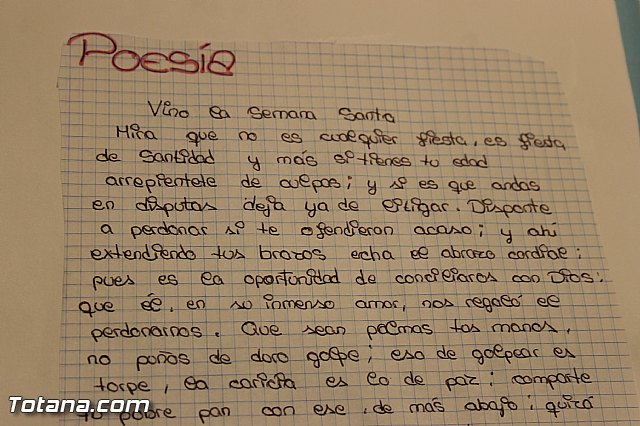 Poesía
Vino la Semana Santa
Mira que no es cualquier fiesta, es fiesta
de Santidad y más si tienes tu edad
arrepientete de culpas; y si es que andas
en disputas deja ya de esligar. Disponte
a perdonar si te ofendieron acaso; y ahí
extendiendo tus brazos echa el abrazo cordial;
pues es la oportunidad de conciliaros con Dios;
que él, en su inmenso amor, nos regaló el
perdonarnos. Que sean palmas tus manos,
no poños de duro golpe; eso de golpear es
torpe, la caricia es lo de paz; comparte
tu pobre pan con ese, de más abajo; quizá
Totana.com